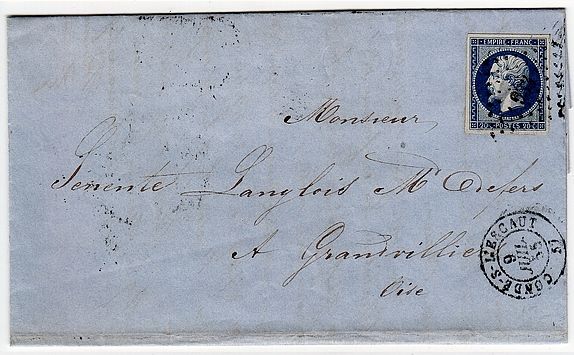 EMPIRE FRANC.
20 c. POSTES 20 c.
Monsieur
Langlois Md de fers
A Grandvilliers
Oise
CONDÉ-S-L'ESCAUT
9
JUIL.
55